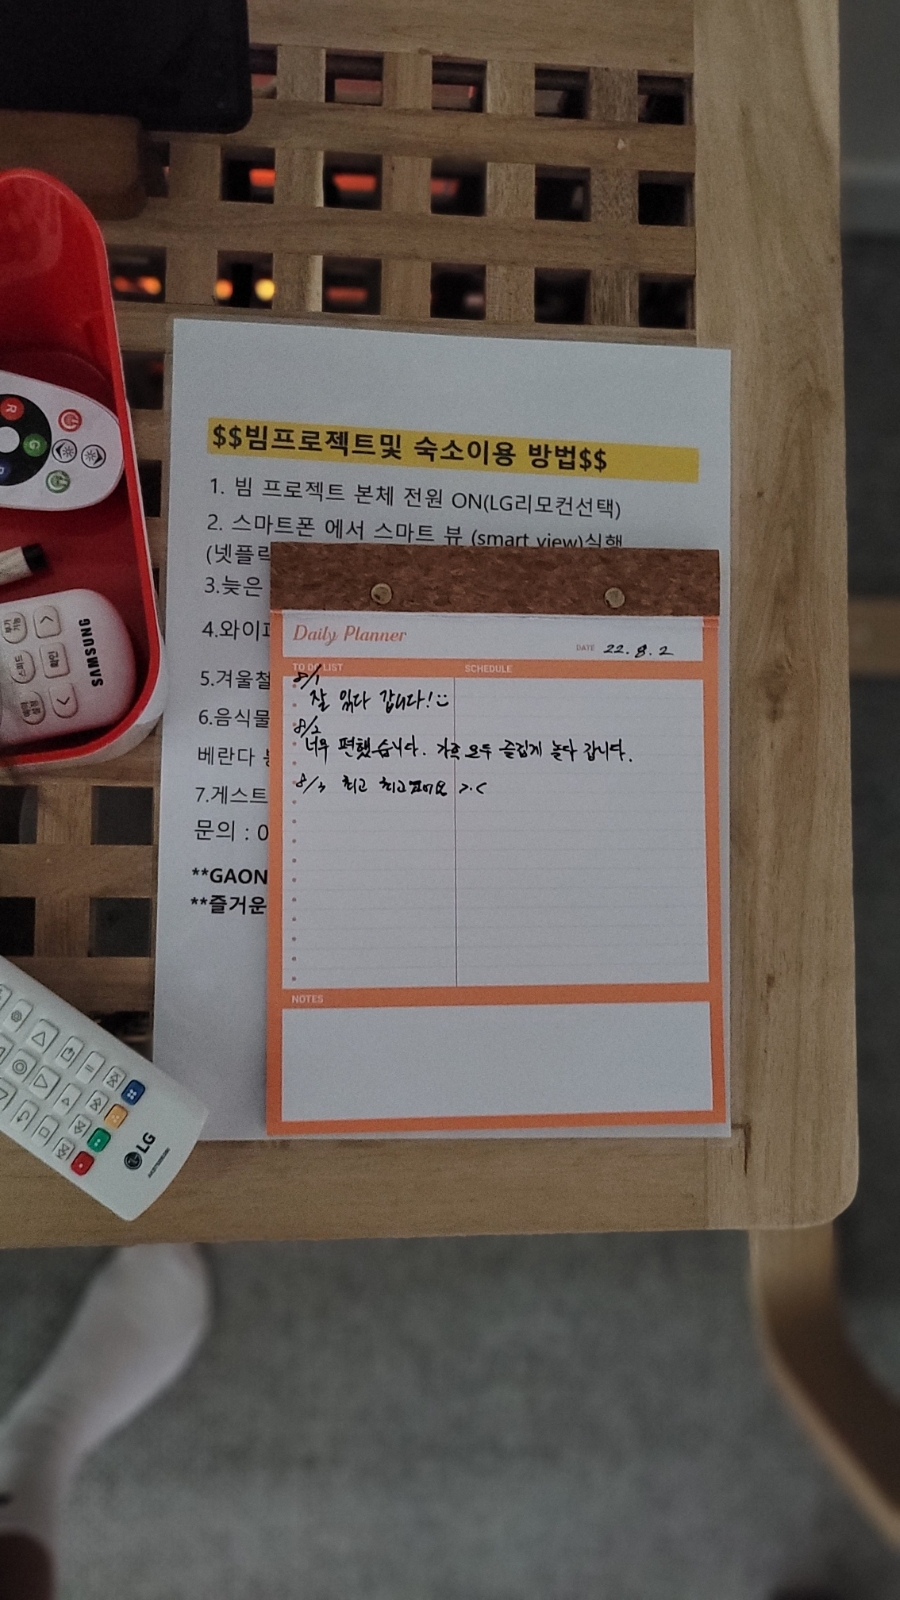 $$빔프로젝트및 숙소이용 방법$$
1. 빔 프로젝트 본체 전원 ON(LG리모컨선택)
2. 스마트폰 에서 스마트 뷰 (smart view)실행
(넷플릭
3.늦은
4.와이파
5.겨울철
6.음식물
베란다
7.게스트
문의 : 0
**GAON
**즐거운
Daily Planner
DATE 22. 8. 2
TO DO LIST SCHEDULE
8/1
잘 있다 갑니다!
8/2
너무 편했습니다. 가족 모두 즐겁게 놀다 갑니다.
8/3 최고 최고표에요 >.<
NOTES
R
G
B
SAMSUNG
확인
스피드
LG